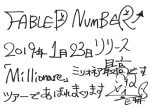 FABLED NUMBER
2019年1月23日リリース
「Millionare」ミリオネア最高です
ツアーであばれまくります